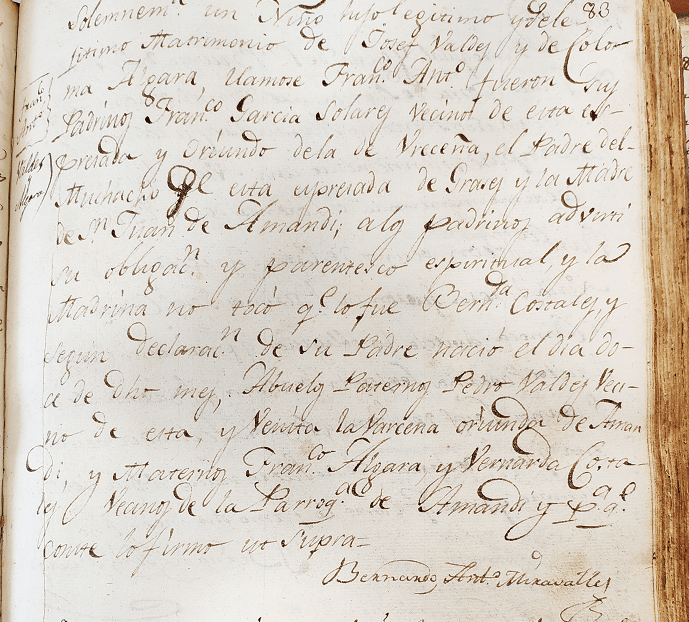 83
Solemnem.te un Niño hijo legitimo y de le-
jitimo Matrimonio de Josef Valdes y de Colo-
ma Algara, llamose Fran.co Ant.o fueron sus
Padrinos Fran.co Garcia Solares Vecinos de esta es-
presada y oriundo de la de Vreceña, el Padre del
Muchacho de esta espresada de Grases y la Madre
de S.n Juan de Amandi; a los padrinos adverti
su obligac.n y parentesco espiritual, y la
Madrina no tocó q.e lo fue Bern.da Costales, y
segun declarac.n de su Padre nació el dia do-
ce de dho mes, Abuelos Paternos Pedro Valdes Veci-
no de esta, y Venita la Varcena oriunda de Aman
di, y Maternos Fran.co Algara y Vernarda Costa-
les Vecinos de la Parroq.a de Amandi y p.a q.e
conste lo firmo ut supra-
Bernardo Ant.o Miravalles